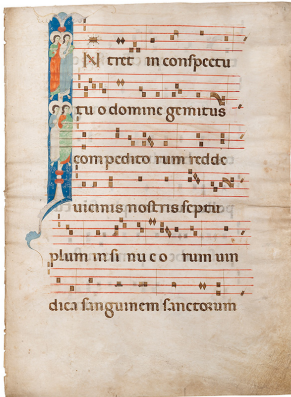 IN tret in conspectu
tu o domine gemitus
compedito rum redde
uicinis nostris septu
plum in si nu e o rum uin
dica sanguinem sanctorum